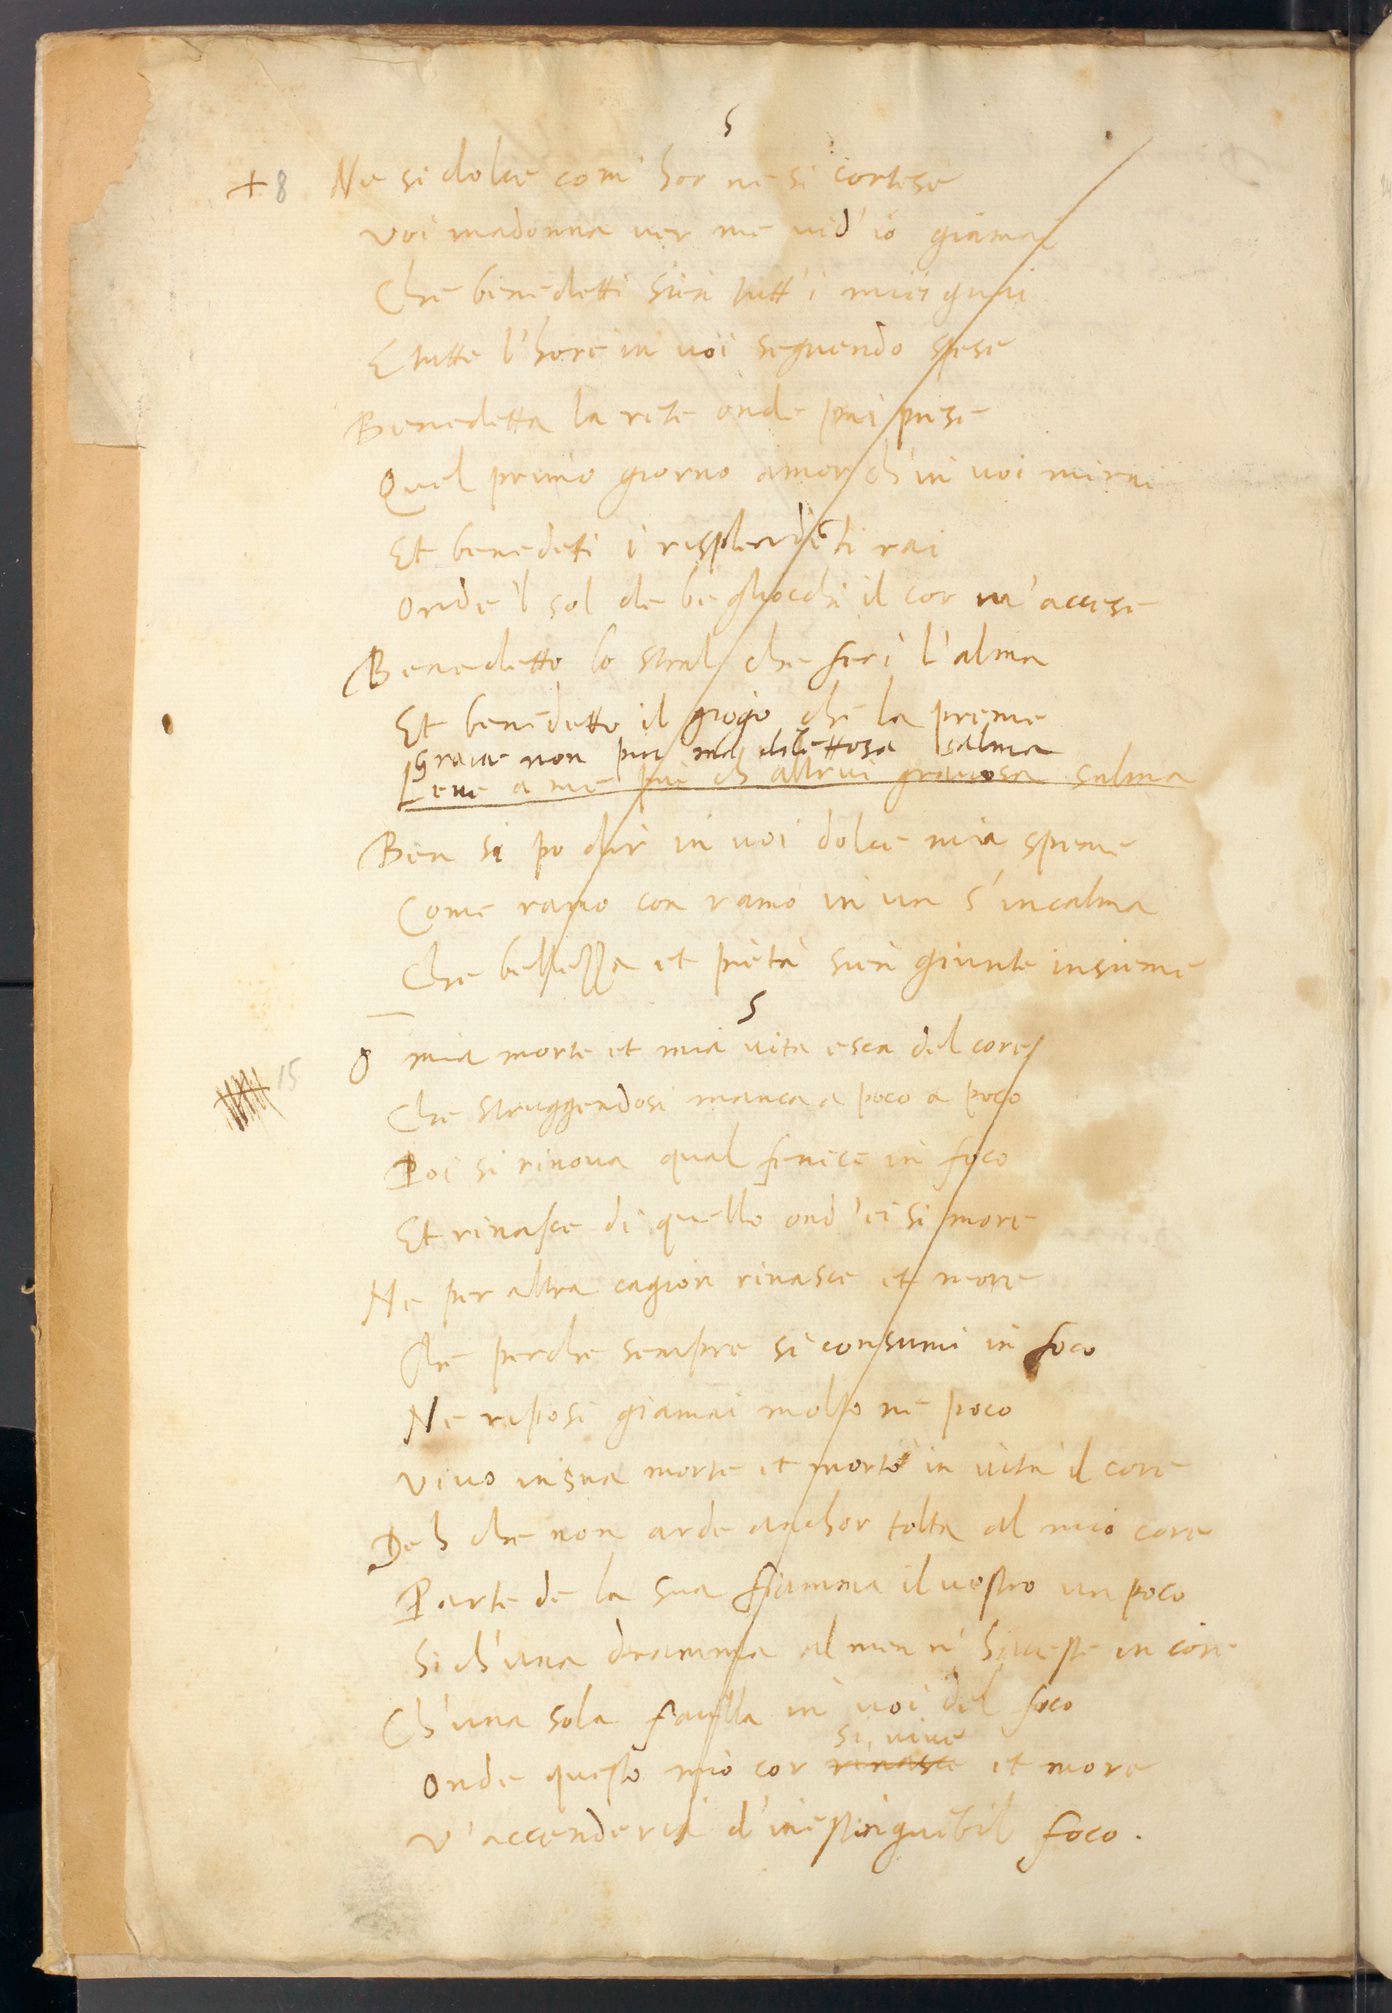 s
+ 8 Ne si dolce com' hor ne si cortese
Voi madonna ver me vid'io giamai
Che benedetti sien tutt'i miei guai
E tutte l'hore in voi seguendo spese
Benedetta la rete onde pria prese
Quel primo giorno amor ch'in voi mirai
Et benedeti i resplendēti rai
Onde 'l sol de begliocchi il cor m'accese
Benedetto lo stral che ferì l'alma
Et benedetto il giogo che la preme
Grave non piu ma dilettosa salma
Leve a me piu ch altrui gravosa salma
Ben si po dir in voi dolce mia speme
Come ramo con ramo in un s'incalma
Che bellezza et pietà sien giunte insieme
s
O mia morte et mia vita esca del core
15
Che struggendosi manca a poco a poco
Poi si rinova qual fenice in foco
Et rinasce di quello ond'ei si more
Ne per altra cagion rinasce et more
Che perche sempre si consumi in foco
Ne riposi giamai molto ne poco
Vivo in sua morte et morto in vita il core
Deh che non arde anchor tolta al mio core
Parte de la sua fiamma il vostro un poco
Si ch'una dramma al men n' haveste in core
Ch'una sola favilla in voi del foco
si vive
Onde questo mio cor rinasce et more
V'accenderia d'inestinguibil foco.